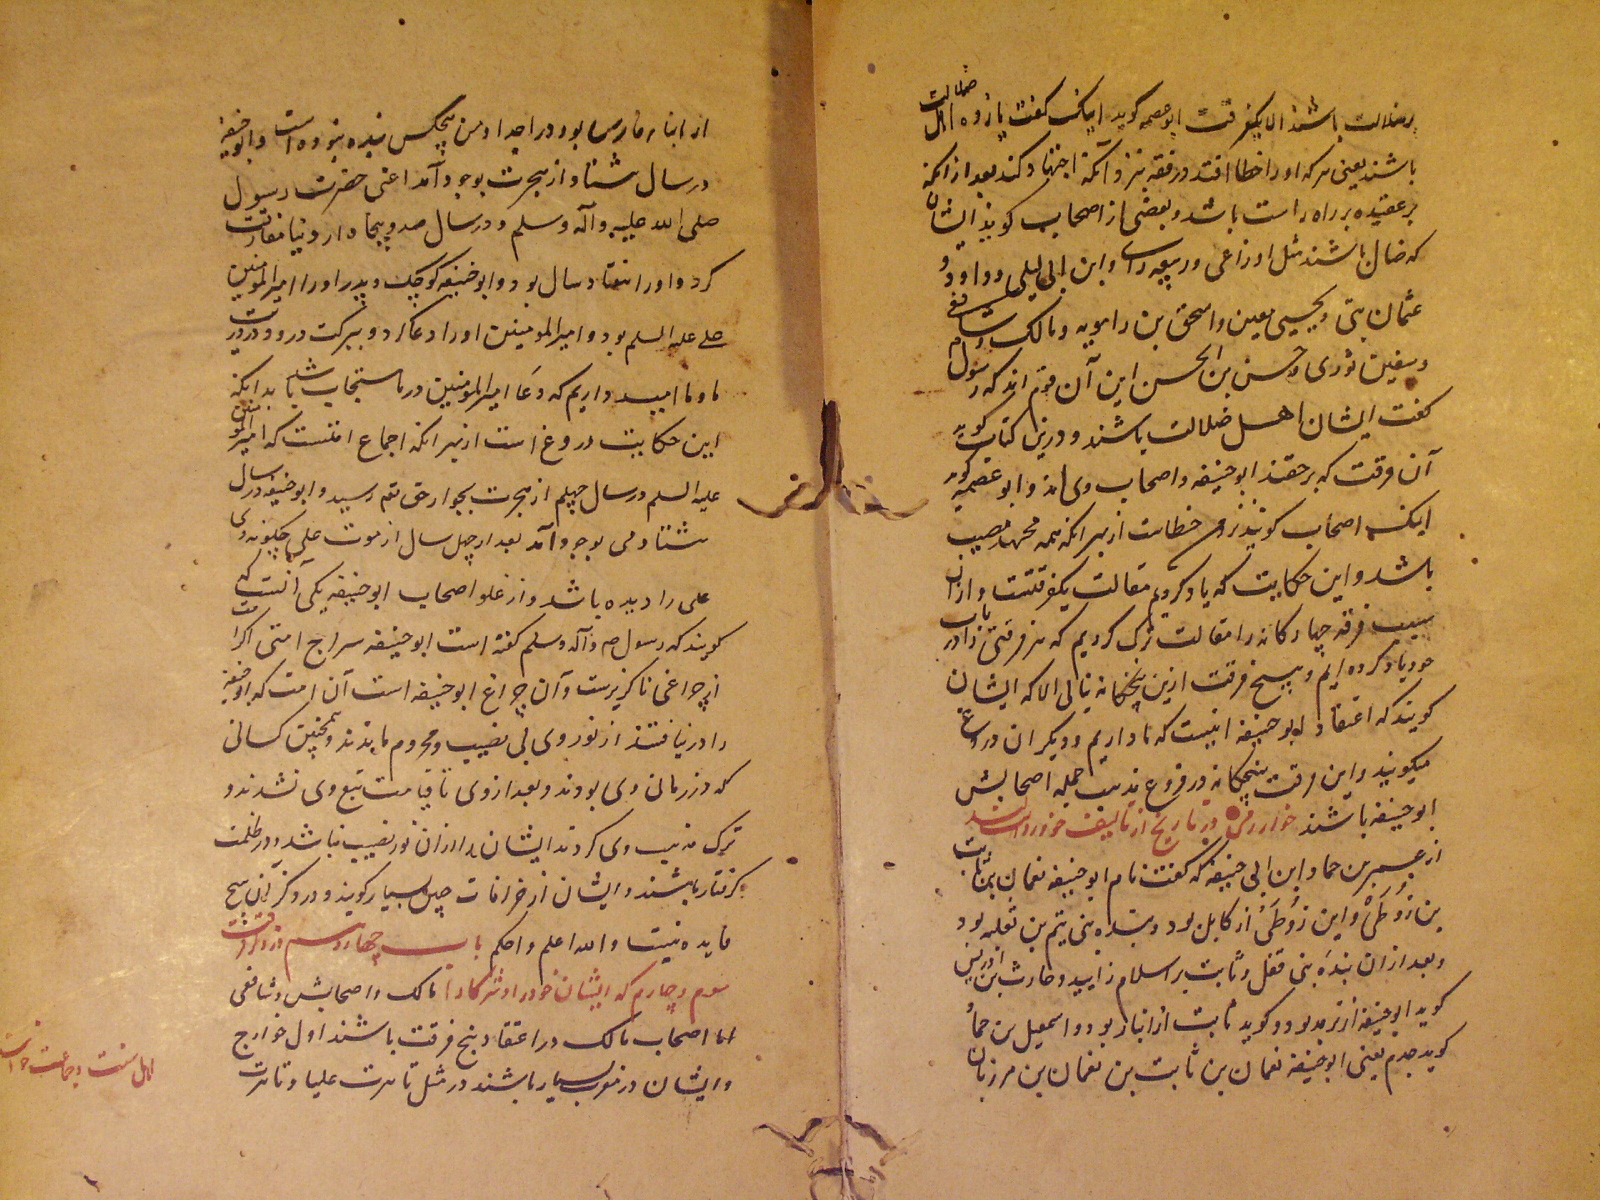 بر ضلالت باشند الا یکفرقت ابوعصمه گوید اینک گفت یازده اهل ضلالت
باشند یعنی هر که او را خطا افتد در فقه بنزد آنکه اجتهاد کند بعد از آنکه
بر عقیده بر راه راست باشد و بعضی از اصحاب گویند ایشان
که ضال باشند مثل اوزاعی و ربیعه رای و ابن ابی لیلی و داود و
عثمان بتی و یحیی معین و اسحق بن راهویه و مالک و شافعی
و سفین ثوری و حسن بن الحسن این آن قوم اند که رسول
گفت ایشان اهل ضلالت باشند و درین کتاب گوید
آن فرقت که بر حقند ابوحنیفه و اصحاب وی اند و ابوعصمه گوید
اینک اصحاب گویند نزد من خطاست از بهر انکه همه مجتهد مصیب
باشد و این حکایت که یاد کردیم مقالت یکفرقتست و ازان
سبب فرقه چهارگانه را مقالت ترک کردیم که هر فرقتی را در باب
خود یاد کرده ایم و هیچ فرقت ازین پنجگانه نیابی الا که ایشان
گویند که اعتقاد ابوحنیفه اینست که ما داریم و دیگران دروغ
میگویند و این فرقت پنجگانه در فروع مذهب جمله اصحابش
ابوحنیفه باشند خوارزمی در تاریخ از تالیف خود روایت کند
از عمر بن حماد ابن ابی حنیفه که گفت نام ابوحنیفه نعمان بن ثابت
بن زُوطَی و این زُوطَی از کابل بود و بنده بنی یتم بن ثعلبه بود
و بعد ازان بنده بنی قفل و ثابت بر اسلام زایید و حارث بن ادریس
گوید ابوحنیفه از ترمد بود و گوید ثابت از انبار بود و اسمعیل بن حماد
گوید جدم یعنی ابوحنیفه نعمان بن ثابت بن نعمان بن مرزبان
از ابناء فارس بود و در اجداد من هیچکس بنده نبوده است و ابوحنیفه
در سال هشتاد از هجرت بوجود آمد اعنی حضرت رسول
صلی الله علیه و آله و سلم و در سال صد و پنجاه از دنیا مفارقت
کرد و او را هفتاد سال بود و ابوحنیفه کوچک و پدر او را امیرالمومنین
علی علیه السلم بود و امیرالمومنین او را دعا کرد و ببرکت در وی و در ذریت
ما و ما امید داریم که دعا امیرالمومنین در ما مستجاب باشد بدانکه
این حکایت دروغ است از بهر انکه اجماع امتست که امیرالمومنین
علیه السلم در سال چهلم از هجرت بجوار حق تعم رسید و ابوحنیفه در سال
هشتادمی بوجود آمد بعد از چهل سال از موت علی چگونه وی
علی را دیده باشد و از غلو اصحاب ابوحنیفه یکی آنست که
گویند که رسول ص و آله و سلم گفته است ابوحنیفه سراج امتی اکر امت
از چراغی ناگزیرست و آن چراغ ابوحنیفه است آن امت که ابوحنیفه
را در نیافتند از نور وی بی نصیب و محروم ماندند و همچنین کسانی
که در زمانی وی بودند و بعد از وی تا قیامت تبع وی نشدند و
ترک مذهب وی کردند ایشان را از آن نور نصیب نباشد و در ظلمت
گرفتار باشند و ایشان از خرافات چنین بسیار گویند و در ذکر آن هیچ
فایده نیست و الله اعلم و احکم باب چهاردهم در ذکر فرقت
سوم و چهارم که ایشان خود را و مالک و اصحابش و شافعی
اما اصحاب مالک در اعتقاد پنج فرقت باشند اول خوارج
و ایشان در مغرب بسیار باشند در مثل تاهرت علیا و تاهرت
اهل سنت و جماعت